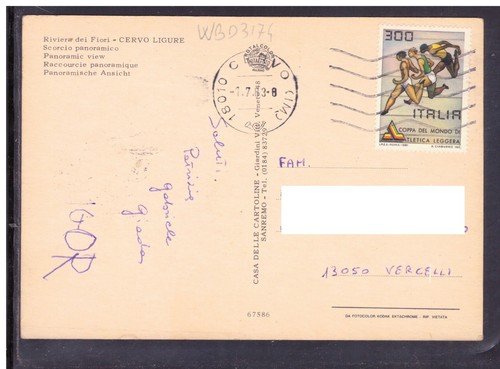 Riviera dei Fiori - CERVO LIGURE
Scorcio panoramico
Panoramic view
Raccourcie panoramique
Panoramische Ansicht
WBD3174
18010 CERVO (IM)
300
ITALIA
COPPA DEL MONDO DI
ATLETICA LEGGERA
Saluti
Gabriele
FAM.
13050 VERCELLI
CASA DELLE CARTOLINE - Giardini Vitt. Veneto
SANREMO - Tel. (0184)
67586
DA FOTOCOLOR KODAK EKTACHROME - RIP. VIETATA